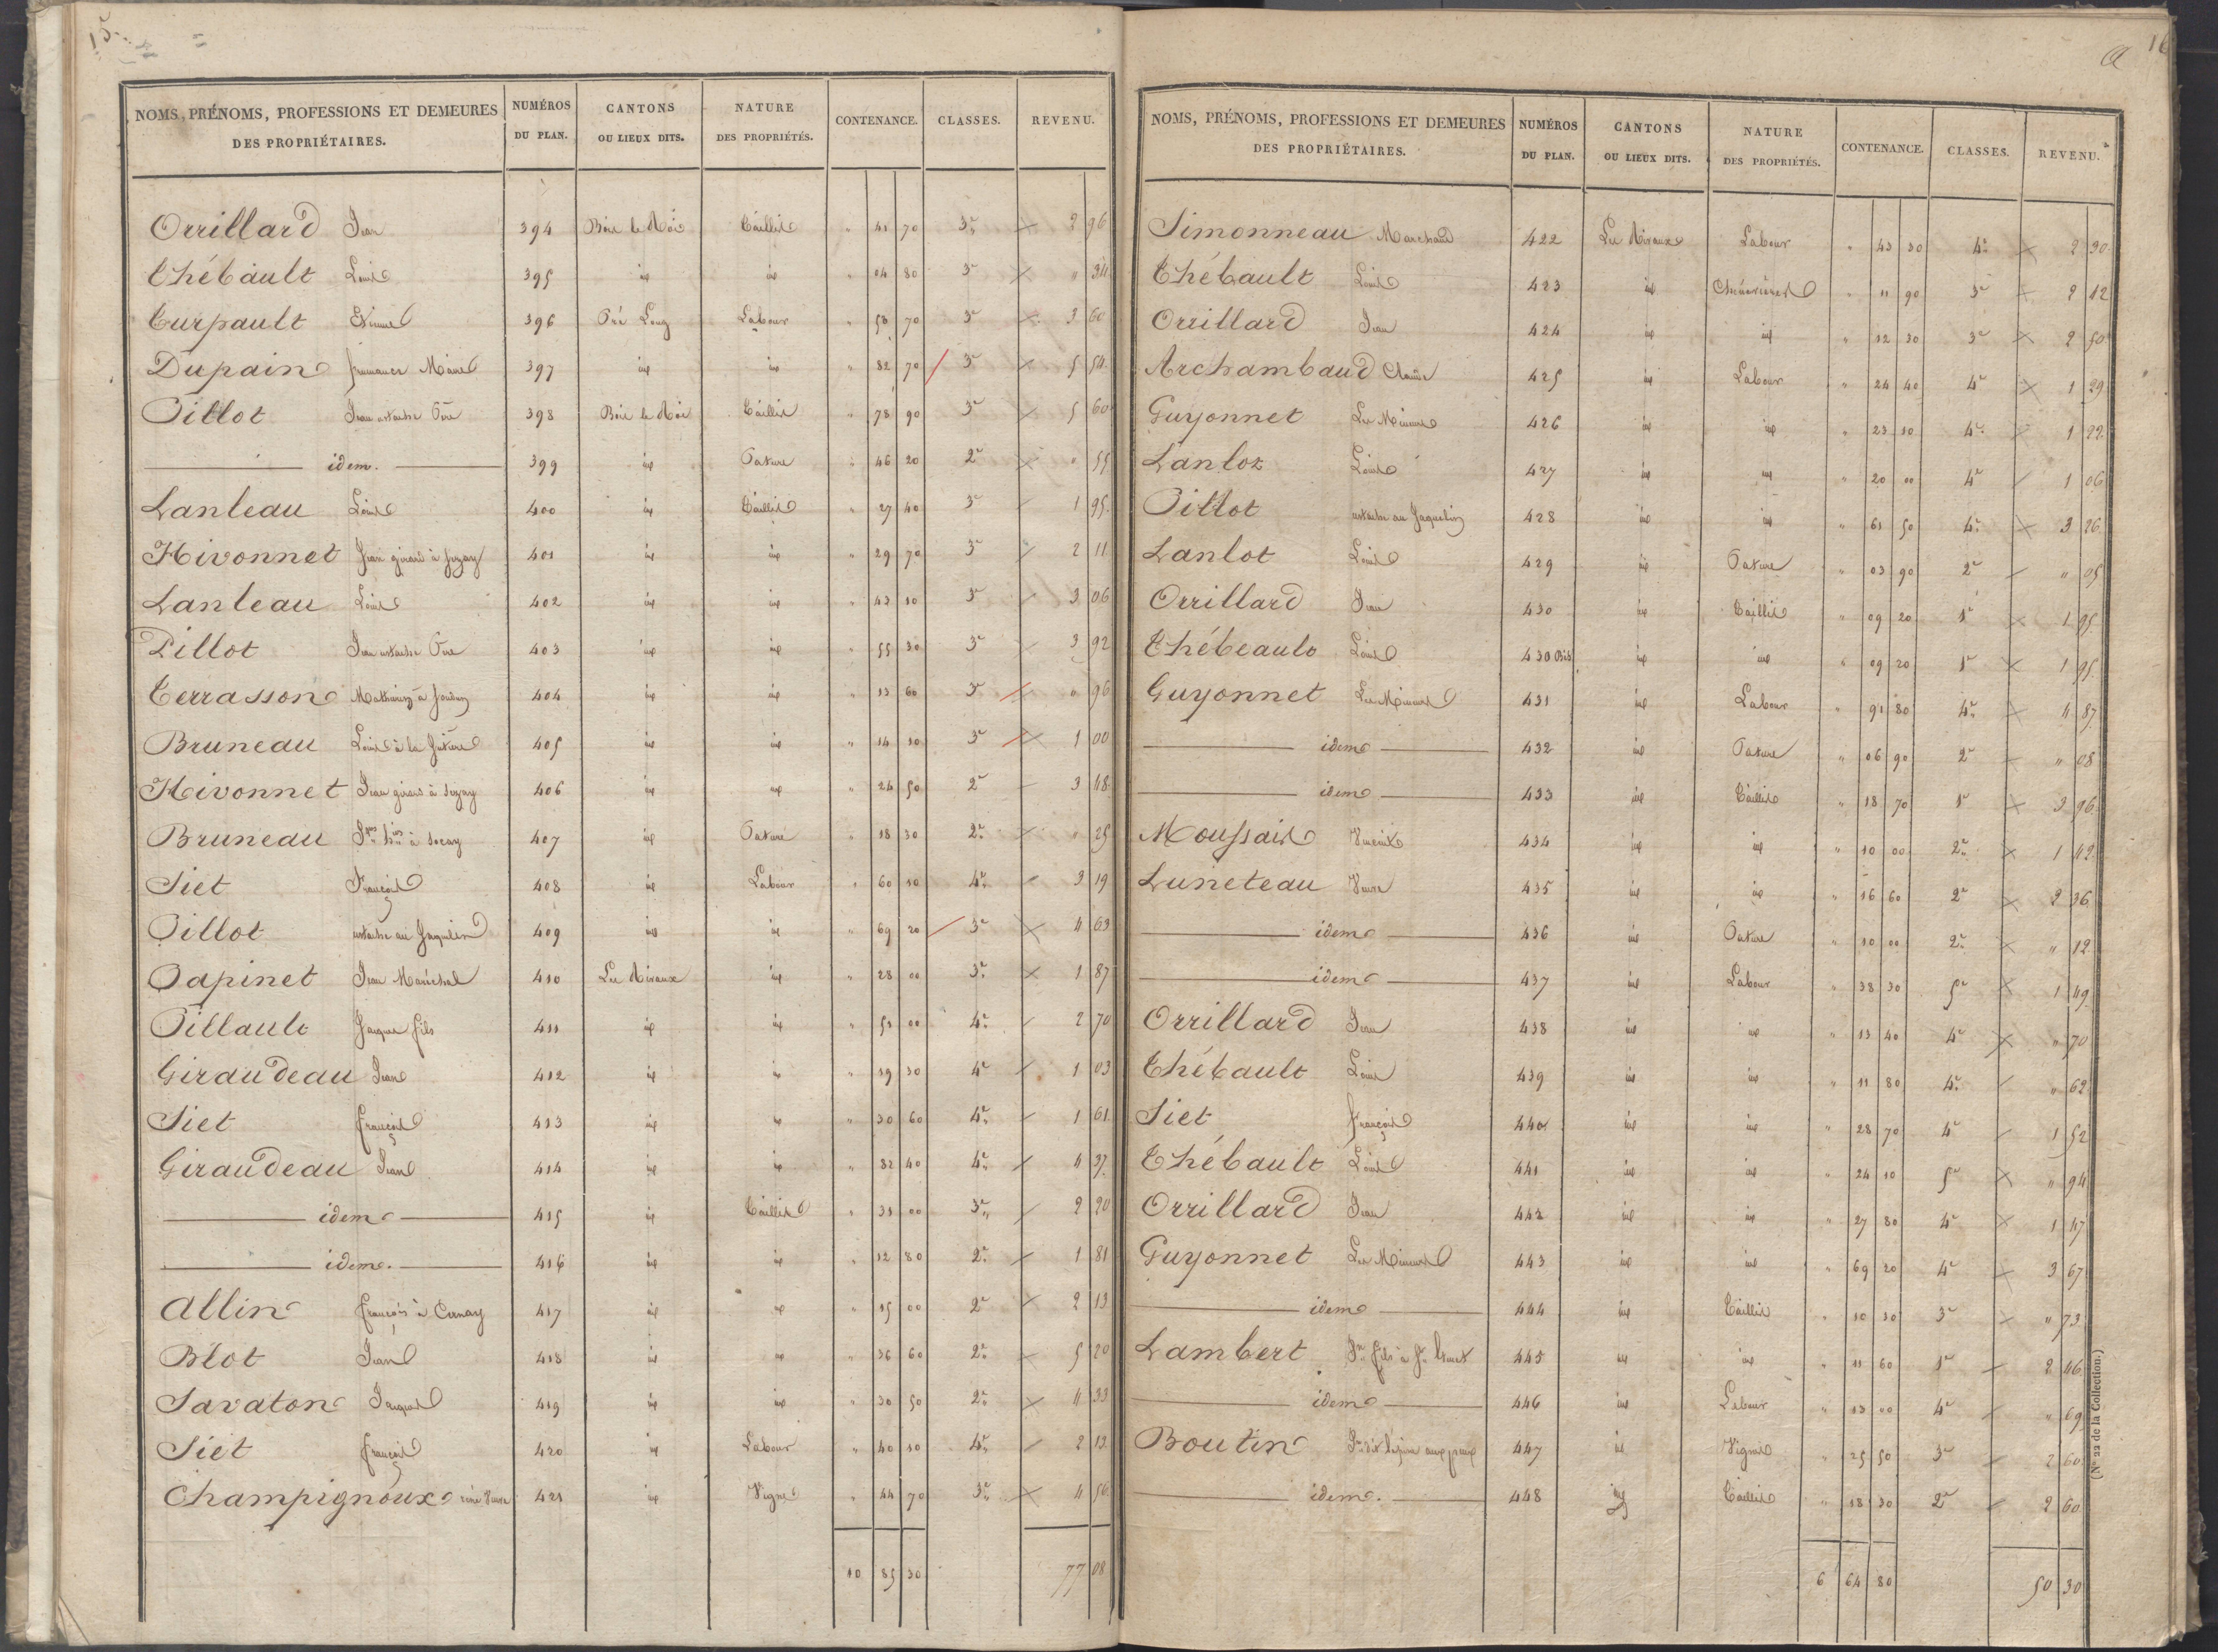 15.
NOMS, PRÉNOMS, PROFESSIONS ET DEMEURES DES PROPRIÉTAIRES. NUMÉROS DU PLAN. CANTONS OU LIEUX DITS. NATURE DES PROPRIÉTÉS. CONTENANCE. CLASSES. REVENU.
Orrillard Jean 394 Taillis " 41 70 3e 2 96
Thébault Louis 395 id id " 04 80 3e " 34
Turpault Etienne 396 Pré Long Labour " 53 70 3e 3 60
Dupain 397 id id " 82 70 3e 5 54
Pillot Jean 398 Taillis " 78 90 3e 5 60
idem. 399 id Pature " 46 20 2e " 55
Lanleau Louis 400 id Taillis " 27 40 3e 1 95
Hivonnet Jean girard à 401 id id " 29 70 3e 2 11
Lanleau Louis 402 id id " 43 10 3e 3 06
Pillot Jean 403 id id " 55 30 3e 3 92
Terrasson Mathurin à 404 id id " 13 60 3e " 96
Bruneau Louis à la 405 id id " 14 10 3e 1 00
Hivonnet Jean girard à 406 id id " 24 50 2e 3 48
Bruneau 407 id Pature " 18 30 2e " 25
Siet François 408 id Labour " 60 10 4e 3 19
Pillot 409 id id " 69 20 3e 4 63
Papinet Jean Maréchal 410 Les Nivaux id " 28 00 3e 1 87
Pillault Jacques fils 411 id id " 51 00 4e 2 70
Giraudeau Jean 412 id id " 19 50 4e 1 03
Siet françois 413 id id " 30 60 4e 1 61
Giraudeau Jean 414 id id " 82 40 4e 4 37
idem 415 id Taillis " 31 00 3e 2 20
idem. 416 id id " 12 80 2e 1 81
Allin françois à Cernay 417 id id " 15 00 2e 2 13
Blot Jean 418 id id " 36 60 2e 5 20
Savaton Jacques 419 id id " 30 50 2e 4 33
Siet françois 420 id Labour " 40 10 4e 2 13
Champignoux Veuve 421 id Vigne " 44 70 3e 4 56
10 85 30 77 08
a 16
NOMS, PRÉNOMS, PROFESSIONS ET DEMEURES DES PROPRIÉTAIRES. NUMÉROS DU PLAN. CANTONS OU LIEUX DITS. NATURE DES PROPRIÉTÉS. CONTENANCE. CLASSES. REVENU.
Simonneau Marchand 422 Les Nivaux Labour " 43 30 4e 2 30
Thébault Louis 423 id " 11 90 3e 2 42
Orrillard Jean 424 id id " 12 30 3e 2 50
Archambaud 425 id Labour " 24 40 4e 1 29
Guyonnet Les Mineurs 426 id id " 23 10 4e 1 22
Lanlot Louis 427 id id " 20 00 4e 1 06
Pillot 428 id id " 61 50 4e 3 26
Lanlot Louis 429 id Pature " 03 90 2e " 05
Orrillard Jean 430 id Taillis " 09 20 1e 1 95
Thébeault Louis 430 Bis id id " 09 20 1e 1 95
Guyonnet Les Mineurs 431 id Labour " 91 80 4e 4 87
idem 432 id Pature " 06 90 2e " 08
idem 433 id Taillis " 18 70 1e 3 96
Moussais 434 id id " 10 00 2e 1 42
Luneteau Veuve 435 id id " 16 60 2e 2 36
idem 436 id Pature " 10 00 2e " 12
idem 437 id Labour " 38 30 5e 1 49
Orrillard Jean 438 id id " 13 40 4e " 70
Thébault Louis 439 id id " 11 80 4e " 62
Siet françois 440 id id " 28 70 4e 1 52
Thébault Louis 441 id id " 24 10 5e " 94
Orrillard Jean 442 id id " 27 80 4e 1 47
Guyonnet Les Mineurs 443 id id " 69 20 4e 3 67
idem 444 id Taillis " 10 30 3e " 73
Lambert Jn fils à 445 id id " 11 60 1e 2 46
idem 446 id Labour " 13 00 4e " 69
Boutin 447 id Vigne " 25 50 3e 2 60
idem. 448 id Taillis " 18 30 2e 2 60
6 64 80 50 30
(No 22 de la Collection.)